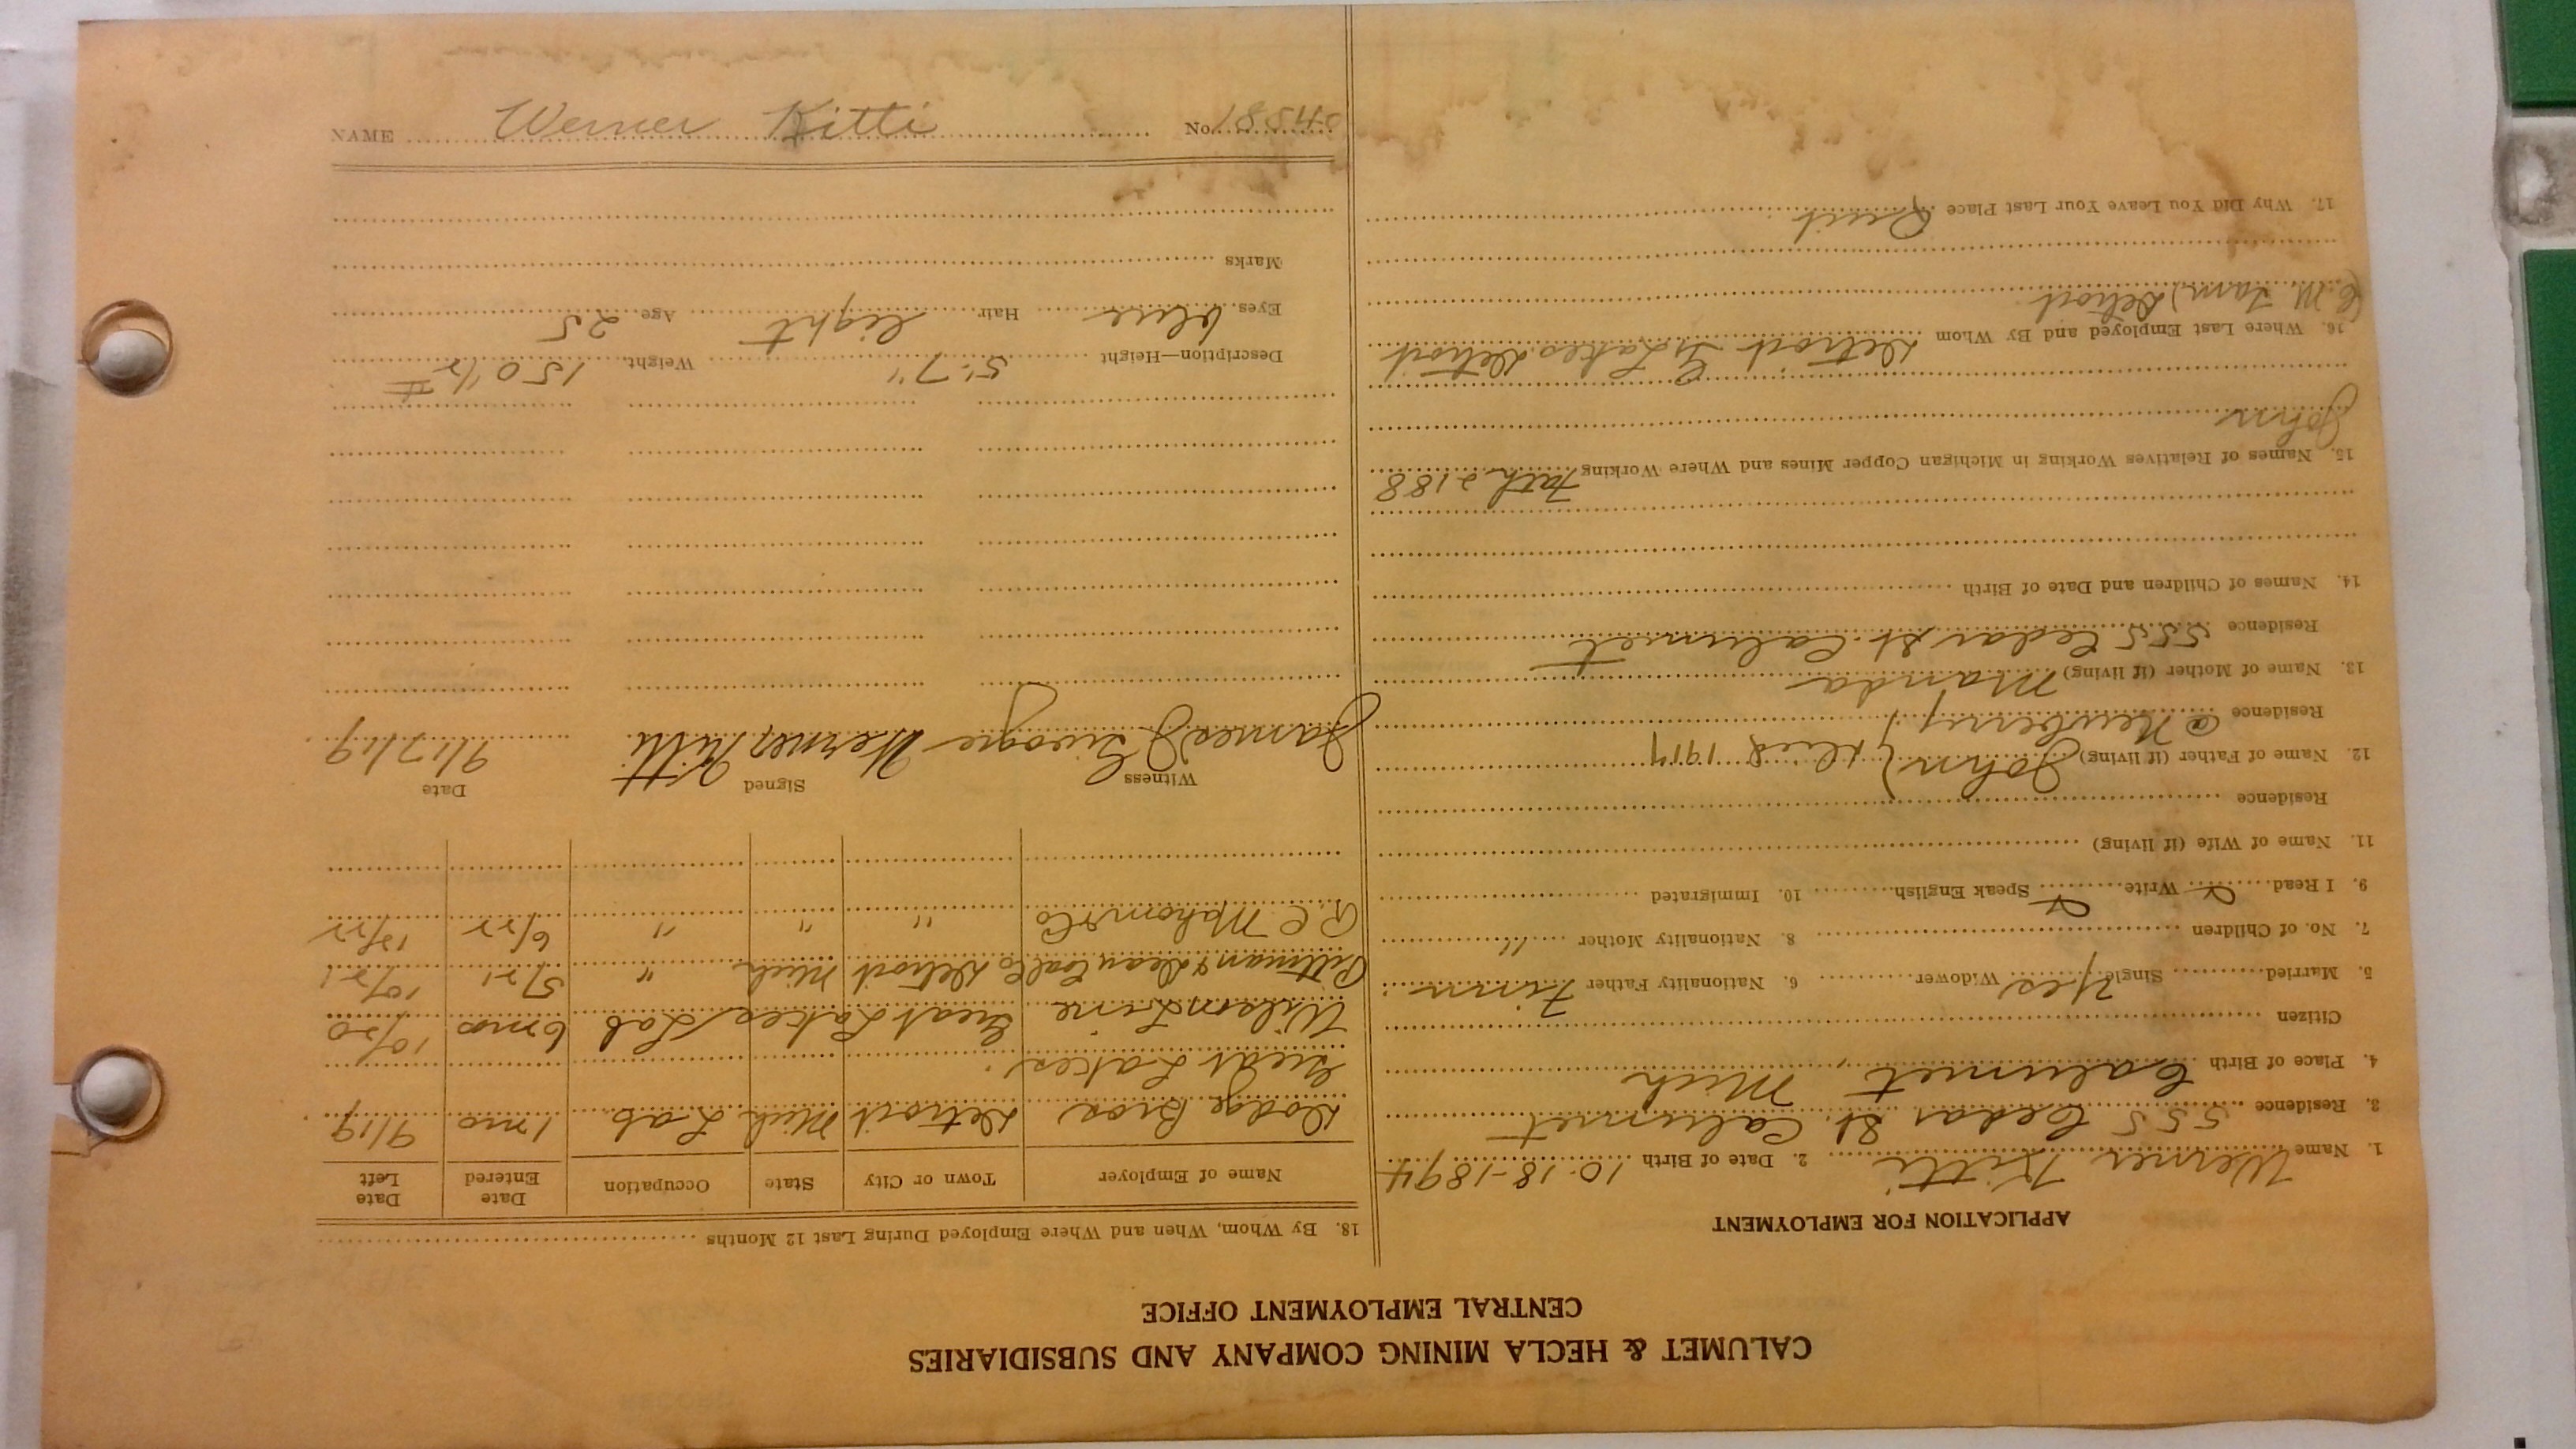 CALUMET & HECLA MINING COMPANY AND SUBSIDIARIES
CENTRAL EMPLOYMENT OFFICE
APPLICATION FOR EMPLOYMENT
1. Name Werner Kitti 2. Date of Birth 10-18-1894
3. Residence 555 Cedar St. Calumet
4. Place of Birth Calumet, Mich
Citizen
5. Married Single Yes Widower 6. Nationality Father Finn
7. No. of Children 8. Nationality Mother "
9. I Read Write Speak English 10. Immigrated
11. Name of Wife (if living)
Residence
12. Name of Father (if living) John (Died 1917
Residence @ Newberry)
13. Name of Mother (if living) Manda
Residence 555 Cedar St. Calumet
14. Names of Children and Date of Birth
15. Names of Relatives Working in Michigan Copper Mines and Where Working Fath 2188
John
16. Where Last Employed and By Whom Detroit Lakes Detroit
Detroit
17. Why Did You Leave Your Last Place Quit
18. By Whom, When and Where Employed During Last 12 Months
Name of Employer Town or City State Occupation Date Entered Date Left
Dodge Bros Detroit Mich Lab 1 mo 9/19
Great Lakes
Wilson Line Great Lakes Lab 6 mo 10/20
Pittman & Dean Coal Co Detroit Mich " 5/21 10/21
R.C. Mahon & Co " " " 6/22 12/22
Witness Signed Date
James Werner Kitti 9/17/19
Description—Height 5'-7" Weight 150 1/2
Eyes blue Hair light Age 25
Marks
NAME Werner Kitti No. 18540